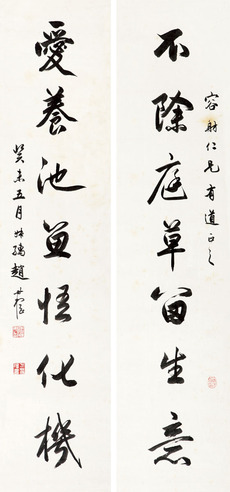 容射仁兄有道正之
不除庭草留生意
愛養池魚悟化機
癸未五月叔孺趙時棡